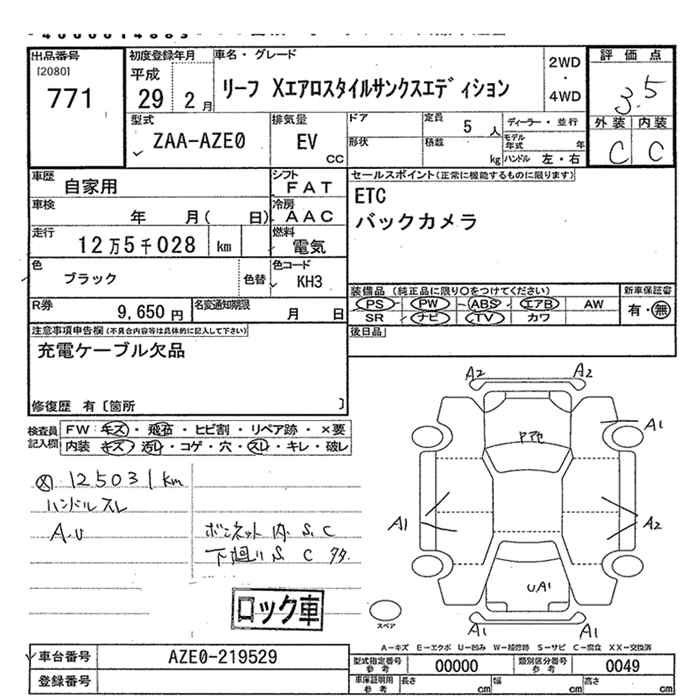 出品番号
[2080]
771
初度登録年月
平成
29 2 月
車名・グレード
リーフ Xエアロスタイルサンクスエディション
2WD
・
4WD
評価点
3.5
外装 内装
C C
型式
ZAA-AZE0
排気量
EV
CC
ドア
形状
定員
5 人
積載
kg
ディーラー・並行
モデル年式 年
ハンドル 左・右
車歴
自家用
シフト
FAT
車検
年 月( 日)
冷房
AAC
走行
12万5千028 km
燃料
電気
色
ブラック
色替
色コード
KH3
R券
9,650 円
名変通知期限
月 日
セールスポイント(正常に機能するものに限ります)
ETC
バックカメラ
装備品 (純正品に限り○をつけてください)
PS PW ABS エアB AW
SR ナビ TV カワ
新車保証書
有・無
後日品
注意事項申告欄(不具合内容等は具体的に記入して下さい)
充電ケーブル欠品
修復歴 有 [箇所 ]
検査員記入欄
FW: キズ・飛石・ヒビ割・リペア跡・×要
内装 キズ・汚れ・コゲ・穴・スレ・キレ・破レ
125031km
ハンドルスレ
A.U
ボンネット内 S.C
下廻り S C
ロック車
A2 A2
A1
A1 A2
UA1
A1 A1
スペア
A-キズ E-エクボ U-凹み W-補修跡 S-サビ C-腐食 XX-交換済
車台番号
AZE0-219529
登録番号
型式指定番号 参考
00000
類別区分番号 参考
0049
車庫証明用 参考
長さ cm
幅 cm
高さ cm